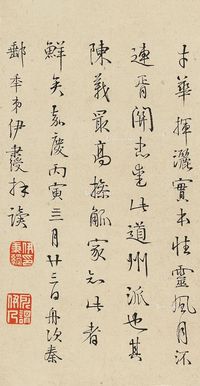 才華揮灑實本性靈風月流
連胥關忠孝此道州派也其
陳義最高操觚家知此者
鮮矣嘉慶丙寅三月廿三日舟次秦
郵弟伊秉綬拜讀
伊印秉綬